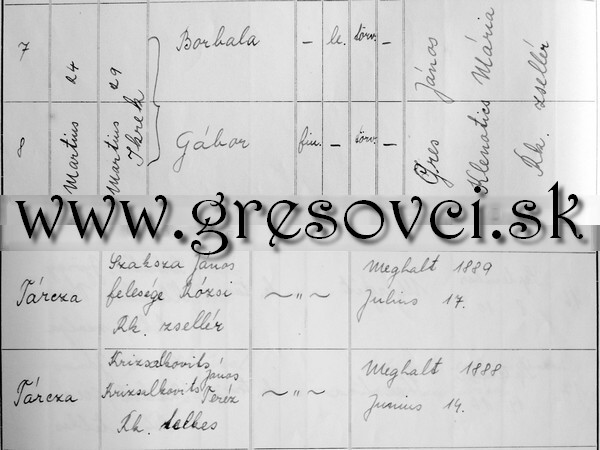 7
Martius 24
Martius 29
Ikrek
Borbala
–
le.
törv.
–
8
Gábor
fiu.
–
törv.
–
Gres János
Klenotics Mária
Rk. zsellér
www.gresovci.sk
Tárcza
Szaksza János
felesége Rózsi
Rk. zsellér
~"~
Meghalt 1889
Julius 17.
Tárcza
Krizsalkovits János
Krizsalkovits Teréz
Rk. telkes
~"~
Meghalt 1888
Junius 14.